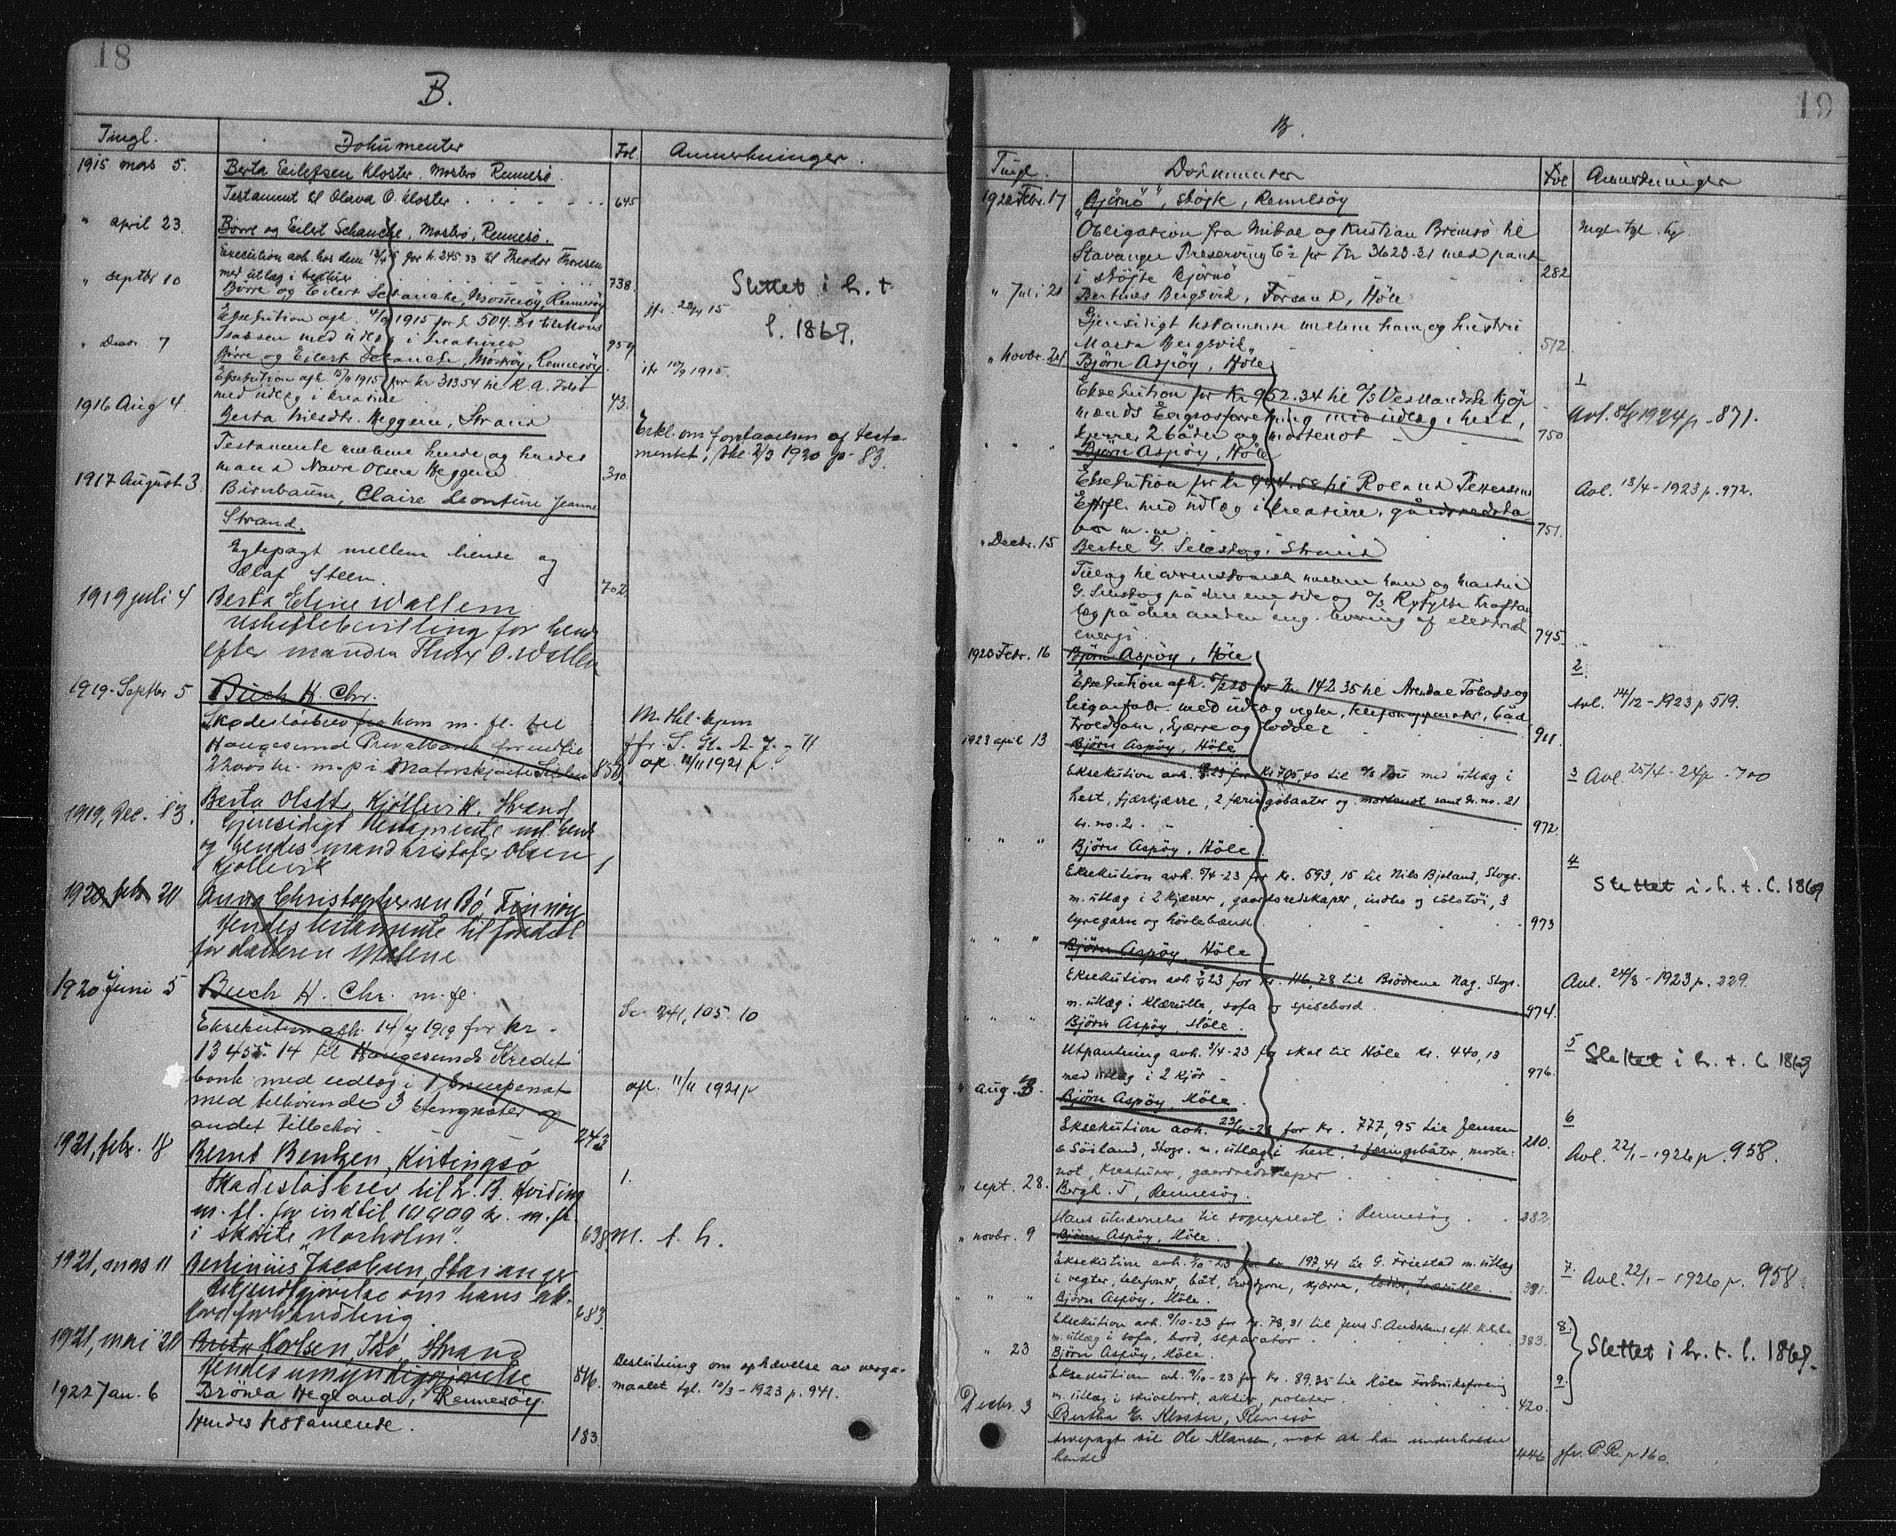 18
B.
Tingl. Dokumenter Fol. Anmerkninger.
1915 mars 5. Berta Eilefsen Kloster, Mosterö Rennesö.
Testament til Olava O. Kloster 645
" april 23. Börre og Eilet Schancke, Mosterö, Rennesö.
Execution avh. hos dem for kr. 245.33 til Theodor Thoresen
med utlæg i 738.
" septbr 10 Börre og Eilert Schancke, Mosteröy, Rennesöy
Eksekution afh. 1915 for kr 504.31 til Mons
Isaksen med udlæg i kreaturer 959
Slettet i h. t.
l. 1869.
" Decbr 7 Börre og Eilert Schancke, Mosteröy, Rennesöy.
Eksekution afh. 1915 for kr 313.54 til K. A.
med udlæg i kreature 43.
1916 Aug 4. Berta Nilsdtr. Heggem, Strand
Testamente mellem hende og hendes
mand Navre Olsen Heggem 310
Erkl. om forstaaelsen af testa-
mentet, thl 2/3 1920 p. 83.
1917 August 3 Birnbaum, Claire Leontine Jeanne
Strand.
Egtepagt mellem hende og
Olaf Steen. 702
1919 juli 4 Berta Eline Wallem
Uskiftebevilling for hende
efter manden Thor O. Wallem
1919. Septbr 5 Buch H. Chr.
Skadeslösbrev fra ham m. fl. til
Haugesund Privatbank for indtil
22000 kr. m. p. i Motorskjöite 850
M. thl. hjem
jfr. S. St. A. 7. - 71
ap. 11/11 1921 p.
1919, Dec. 83. Berta Olsdt, Kjöllevik, Strand
Gjensidigt testamente ml. hende
og hendes mand Kristofer Olsen
Kjöllevik 1
1920 feb. 20 Anna Christophersen Bö, Finnöy
Hendes testamente til fordel
for datteren Malene
1920 Juni 5 Buch H. Chr. m. fl.
Eksekution afh. 14/7 1919 for kr.
13455.14 til Haugesunds Kredit
bank med udlæg i 1 Snurpenot
med tilhörende 3 Stengnöter og
andet tilbehör 243
341, 105. 10
ap. 11/11 1921 p
1921, febr. 18 Bernt Bentzen, Kvitingsö
Skadeslösbrev til L. B. Hviding
m. fl. for indtil 10909 kr. m. p.
i sköite "Norholm". 638. M. t. h.
1.
1921, mars 11 Bertinius Jacobsen, Stavanger
Bekjendtgjörelse om hans ak-
kordforhandling 683.
1921, mai 20 Brita Karlsen Idsö, Strand
Hendes umyndiggjörelse 846.
Beslutning om ophævelse av verge-
maalet tgl. 10/3 - 1923 p. 941.
1922 Jan. 6 Brönla Hegland, Rennesöy.
Hendes testamente. 183
19
B.
Tingl. Dokumenter Fol Anmerkninger
1922 Febr. 17 "Björnö", sköjte, Rennesöy
Obligation fra Mikal og Kristian Brimsö til
Stavanger Preserving Co for kr 3623.31 med pant
i sköjte Björnö 282
Mgl. tgl. hj.
" Juli 21 Bertines Bergsvik, Forsand, Höle
Gjensidigt testamente mellem ham og hustru
Marta Bergsvik 512.
" Novbr. 24 Björn Aspöy, Höle
Eksekution for Kr 952.34 til A/S Vestlandske Kjöp-
mænds Engrosforretning med udlæg i hest,
kjerre, 2 båter og mortenot 750
1
Avl. 1924 p. 871.
" " Björn Aspöy, Höle
Eksekution for kr til Roland Pettersens
Efterfl. med udlæg i kreature, gårdsredska
ber m. m. 751.
Avl. 13/4 - 1923 p. 972.
" Decbr. 15 Bertel G. Selestog, Strand
Tillæg til overenskomst mellem ham og Martin
G. Selestog på den ene side og A/S Ryfylke kraftan
læg på den anden ang. levering af elektrisk
energi. 795.
1923 Febr. 16 Björn Aspöy, Höle
Eksekution afh. for kr 142.35 til Arendal Tobaks og
Cigarfabr. med udlæg i vegter, telefonapparater, båd
troldgarn, kjærre og lodder 911
2
Avl. 14/12 - 1923 p 519.
1923 april 13 Björn Aspöy, Höle
Eksekution avh. 23 for Kr 705,40 til med utlæg i
hest, fjærkjærre, 2 færingsbaater og mortenot samt gr. no. 21
br. no. 2. 972.
3 Avl. 25/4 - 24 p - 700
" " " Björn Aspöy, Höle.
Eksekution avh. 9/4 - 23 for Kr. 593,15 til Nils Bjeland, Stvgr.
m. utlæg i 2 kjærrer, gaardsredskaper, indbo og isletöi, 3
lyregarn og hövlebænk 973
4
Slettet i h. t. l. 1869
" " " Björn Aspöy Höle
Eksekution avh. 23 for Kr. 116,78 til Brödrene Nag, Stvgr.
m. utlæg i Klærulle, sofa og spisebord 974.
Avl. 24/8 - 1923 p. 229.
" " " Björn Aspöy, Höle.
Utpantning avh. 3/4 - 23 for skat til Höle Kr. 440,13
med utlæg i 2 kjör 976.
5
Slettet i h. t. l 1869
" aug. 3. Björn Aspöy, Höle.
Eksekution avh. 23/6 - 23 for Kr. 777,95 til Jensen
& Söiland, Stvgr. m. utlæg i hest, 2 færingsbåter, morte-
not, Kreaturer, gaardredskaper 210.
6
Avl. 22/1 - 1926 p. 958.
" sept. 28. Bergh. T, Rennesöy.
Hans utnevnelse til sogneprest i Rennesöy 282.
" novbr. 9 Björn Aspöy, Höle.
Eksekution avh. 1/10 - 23 for kr. 197,41 til G. Friestad m. utlæg
i vegter, telefoner, båt, troldgarn, kjærre, lodder, taurulle. 381.
7.
Avl. 22/1 - 1926 p. 958.
" " Björn Aspöy, Höle.
Eksekution avh. 9/10 - 23 for Kr. 78,31 til Jens S. Andersens eft
m. utlæg i sofa, bord, separator 383.
8.
Slettet i h. t. l. 1869.
" 23 Björn Aspöy, Höle.
Eksekution avh. 9/10 - 23 for Kr. 89.35 til Höle Forbruksforening
m. utlæg i skrivebord, aktier, poteter 420.
9.
Decbr. 3 Bertha E. Kloster, Rennesö
Arvepagt til Ole Klausen, mot at han underholder
hende 446. jfr. P. R. p 160.